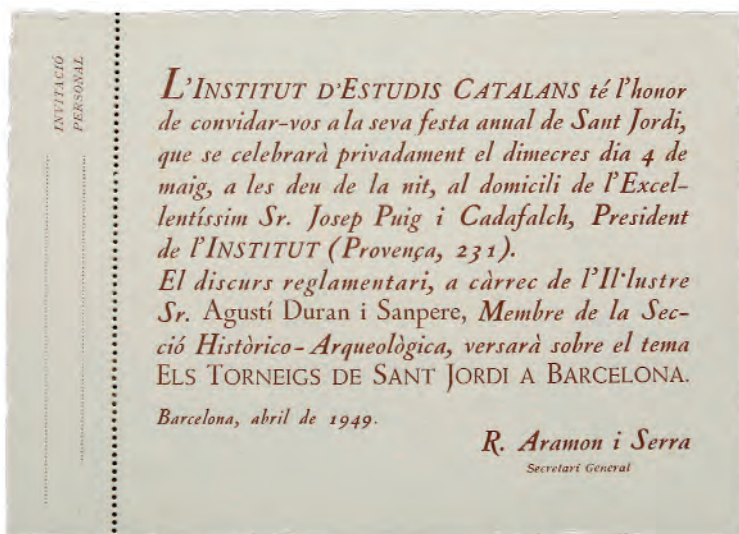 INVITACIÓ
PERSONAL
L'INSTITUT D'ESTUDIS CATALANS té l'honor
de convidar-vos a la seva festa anual de Sant Jordi,
que se celebrarà privadament el dimecres dia 4 de
maig, a les deu de la nit, al domicili de l'Excel-
lentíssim Sr. Josep Puig i Cadafalch, President
de l'INSTITUT (Provença, 231).
El discurs reglamentari, a càrrec de l'Il·lustre
Sr. Agustí Duran i Sanpere, Membre de la Sec-
ció Històrico-Arqueològica, versarà sobre el tema
ELS TORNEIGS DE SANT JORDI A BARCELONA.
Barcelona, abril de 1949.
R. Aramon i Serra
Secretari General